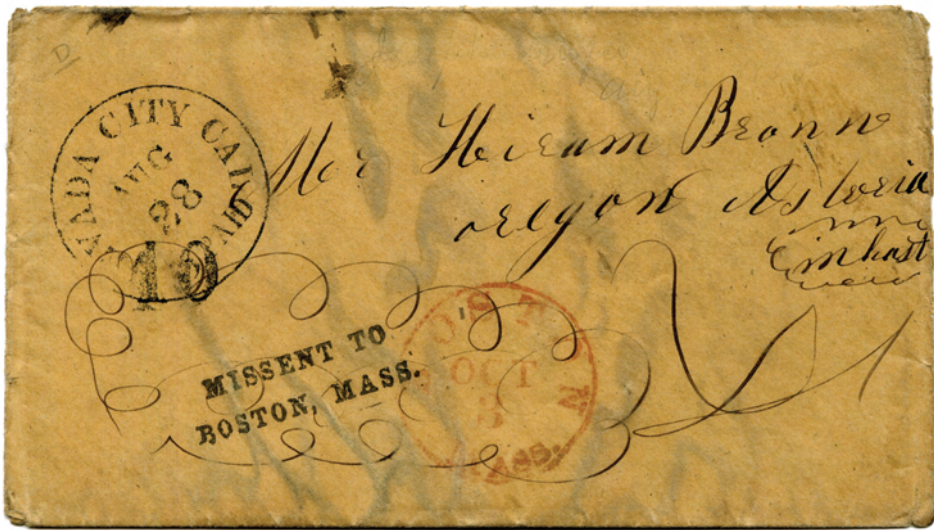 D
VADA CITY CAL
AUG
28
PAID
10
Mr Hiram Bronn
oregon Astoria
in hast
MISSENT TO
BOSTON, MASS.
BOSTON
OCT
3
MASS.